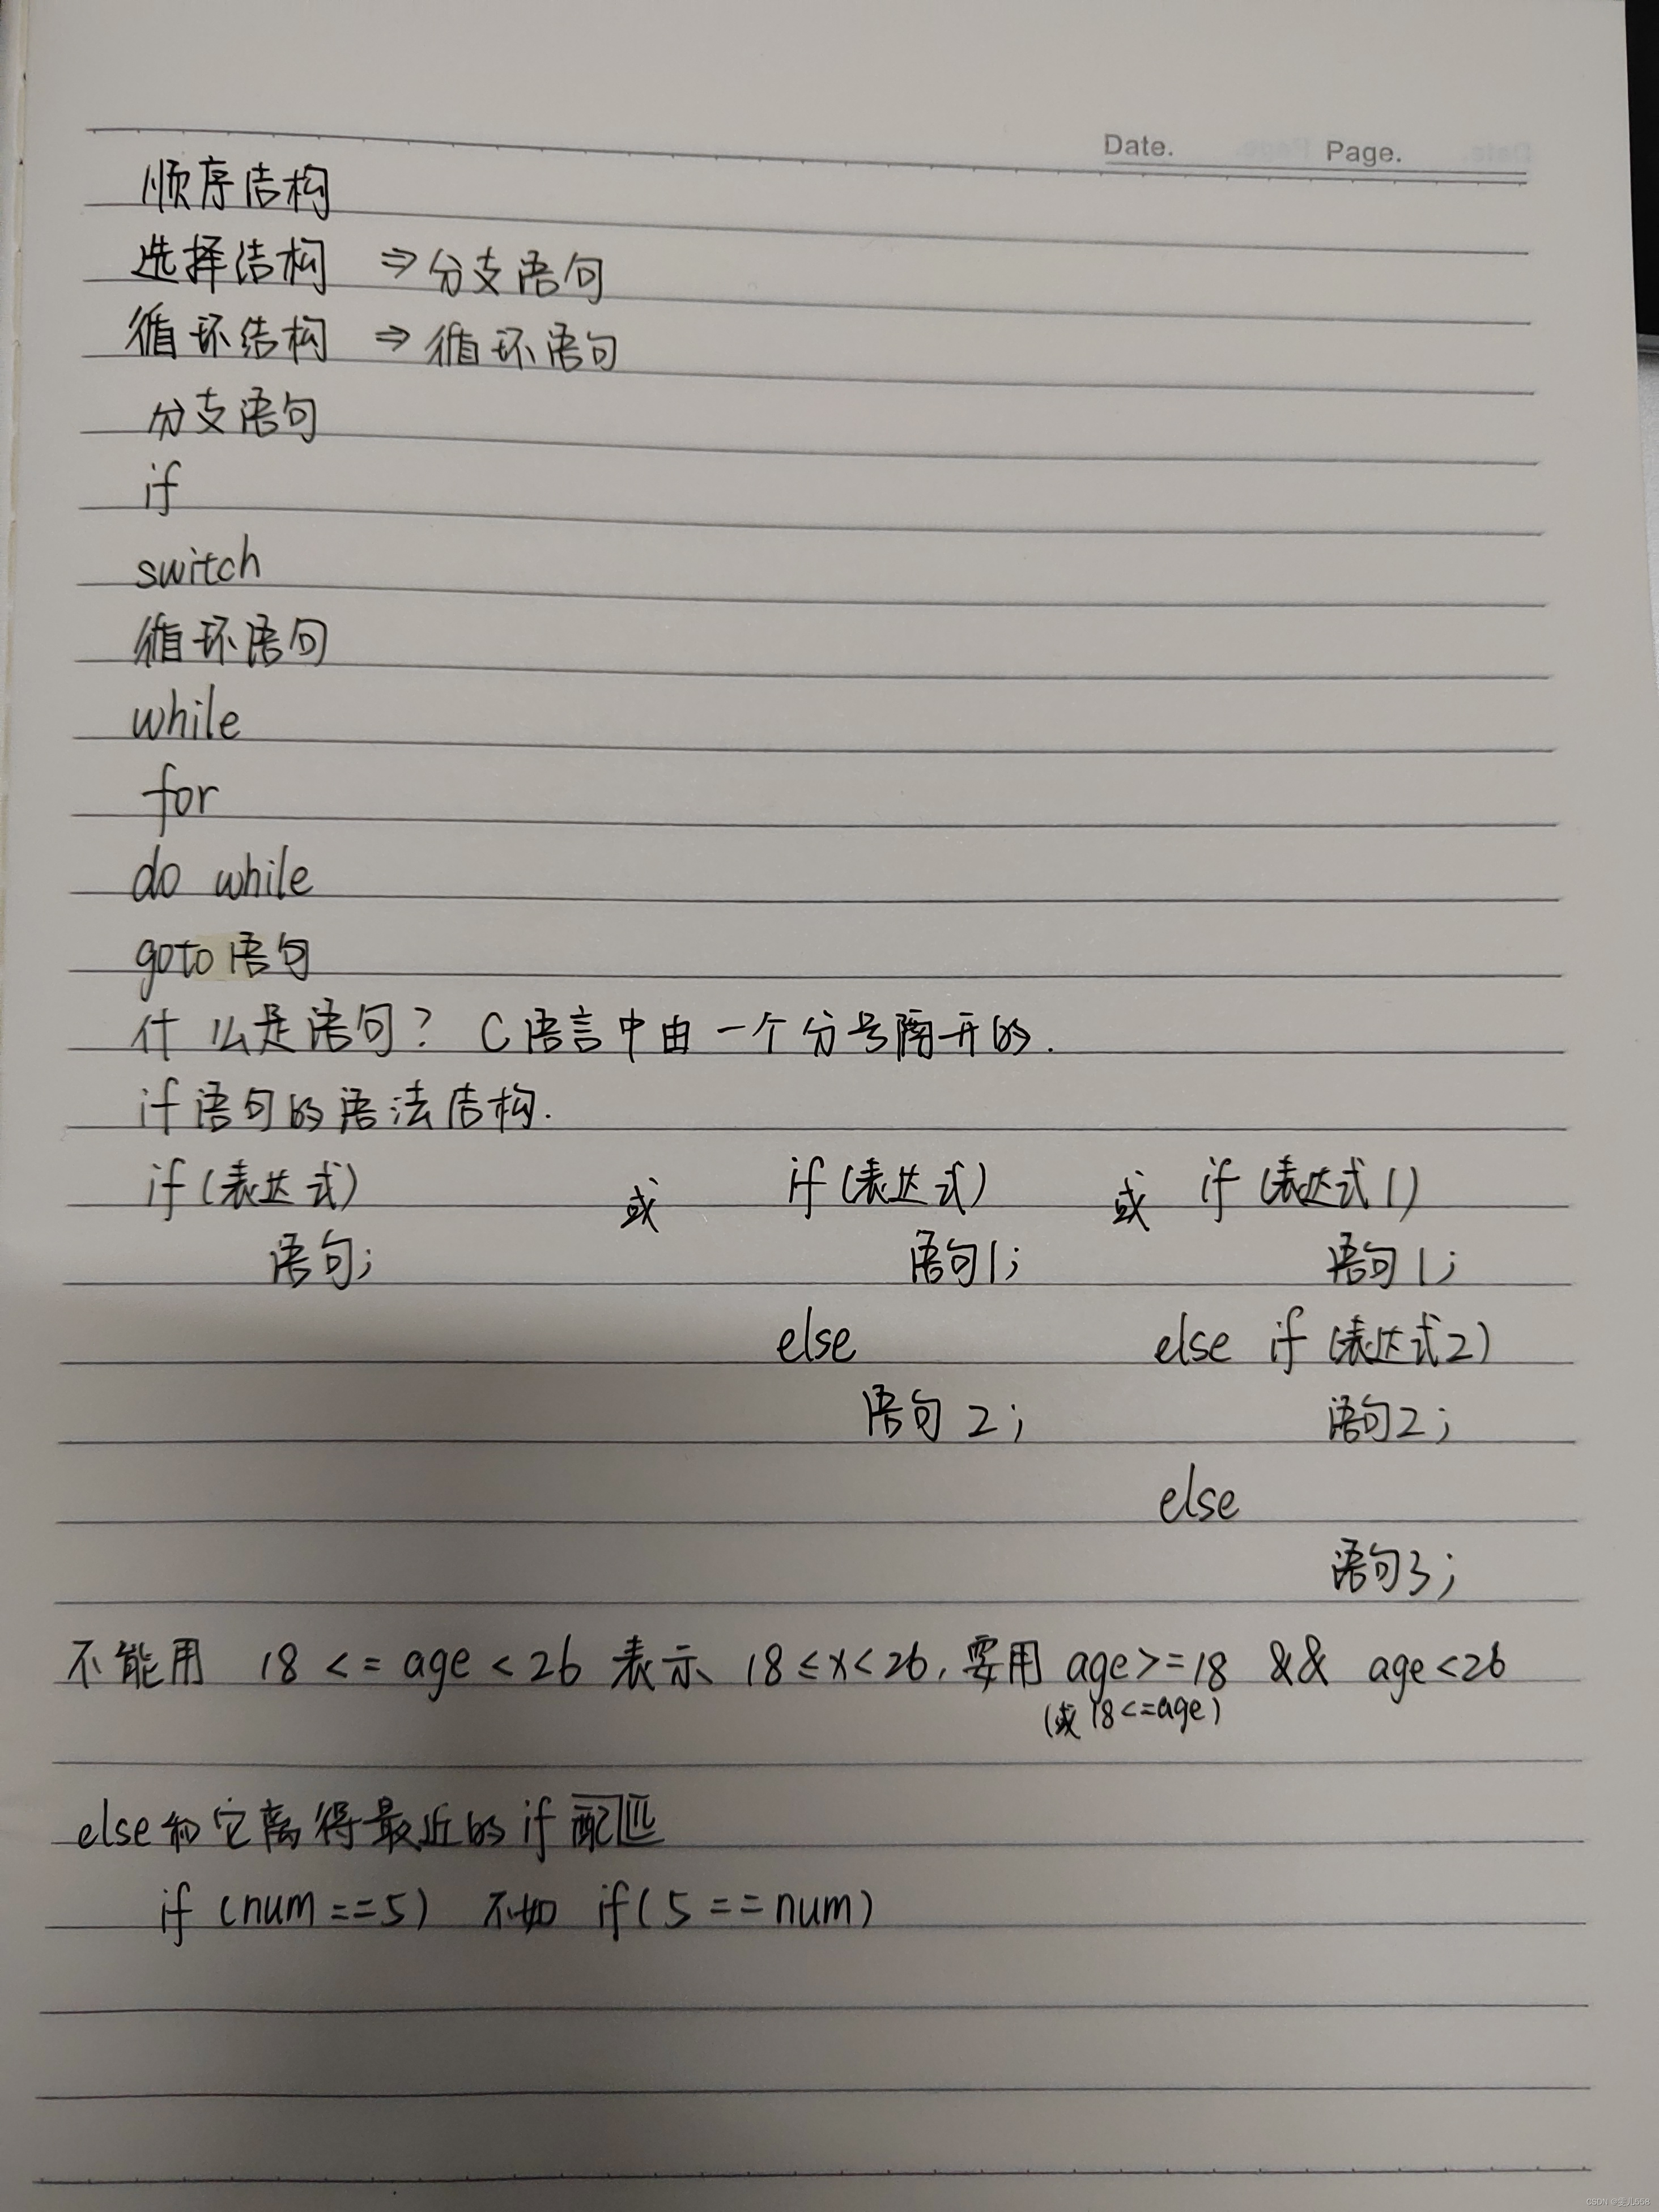 Date. Page.
顺序结构
选择结构 ⇒ 分支语句
循环结构 ⇒ 循环语句
分支语句
if
switch
循环语句
while
for
do while
goto语句
什么是语句? C语言中由一个分号隔开的.
if语句的语法结构.
if(表达式) 或 if(表达式) 或 if(表达式1)
语句; 语句1; 语句1;
else else if(表达式2)
语句2; 语句2;
else
语句3;
不能用 18<=age<26 表示 18≤x<26, 要用 age>=18 && age<26
(或18<=age)
else和它离得最近的if配匹
if (num==5) 不如 if(5==num)